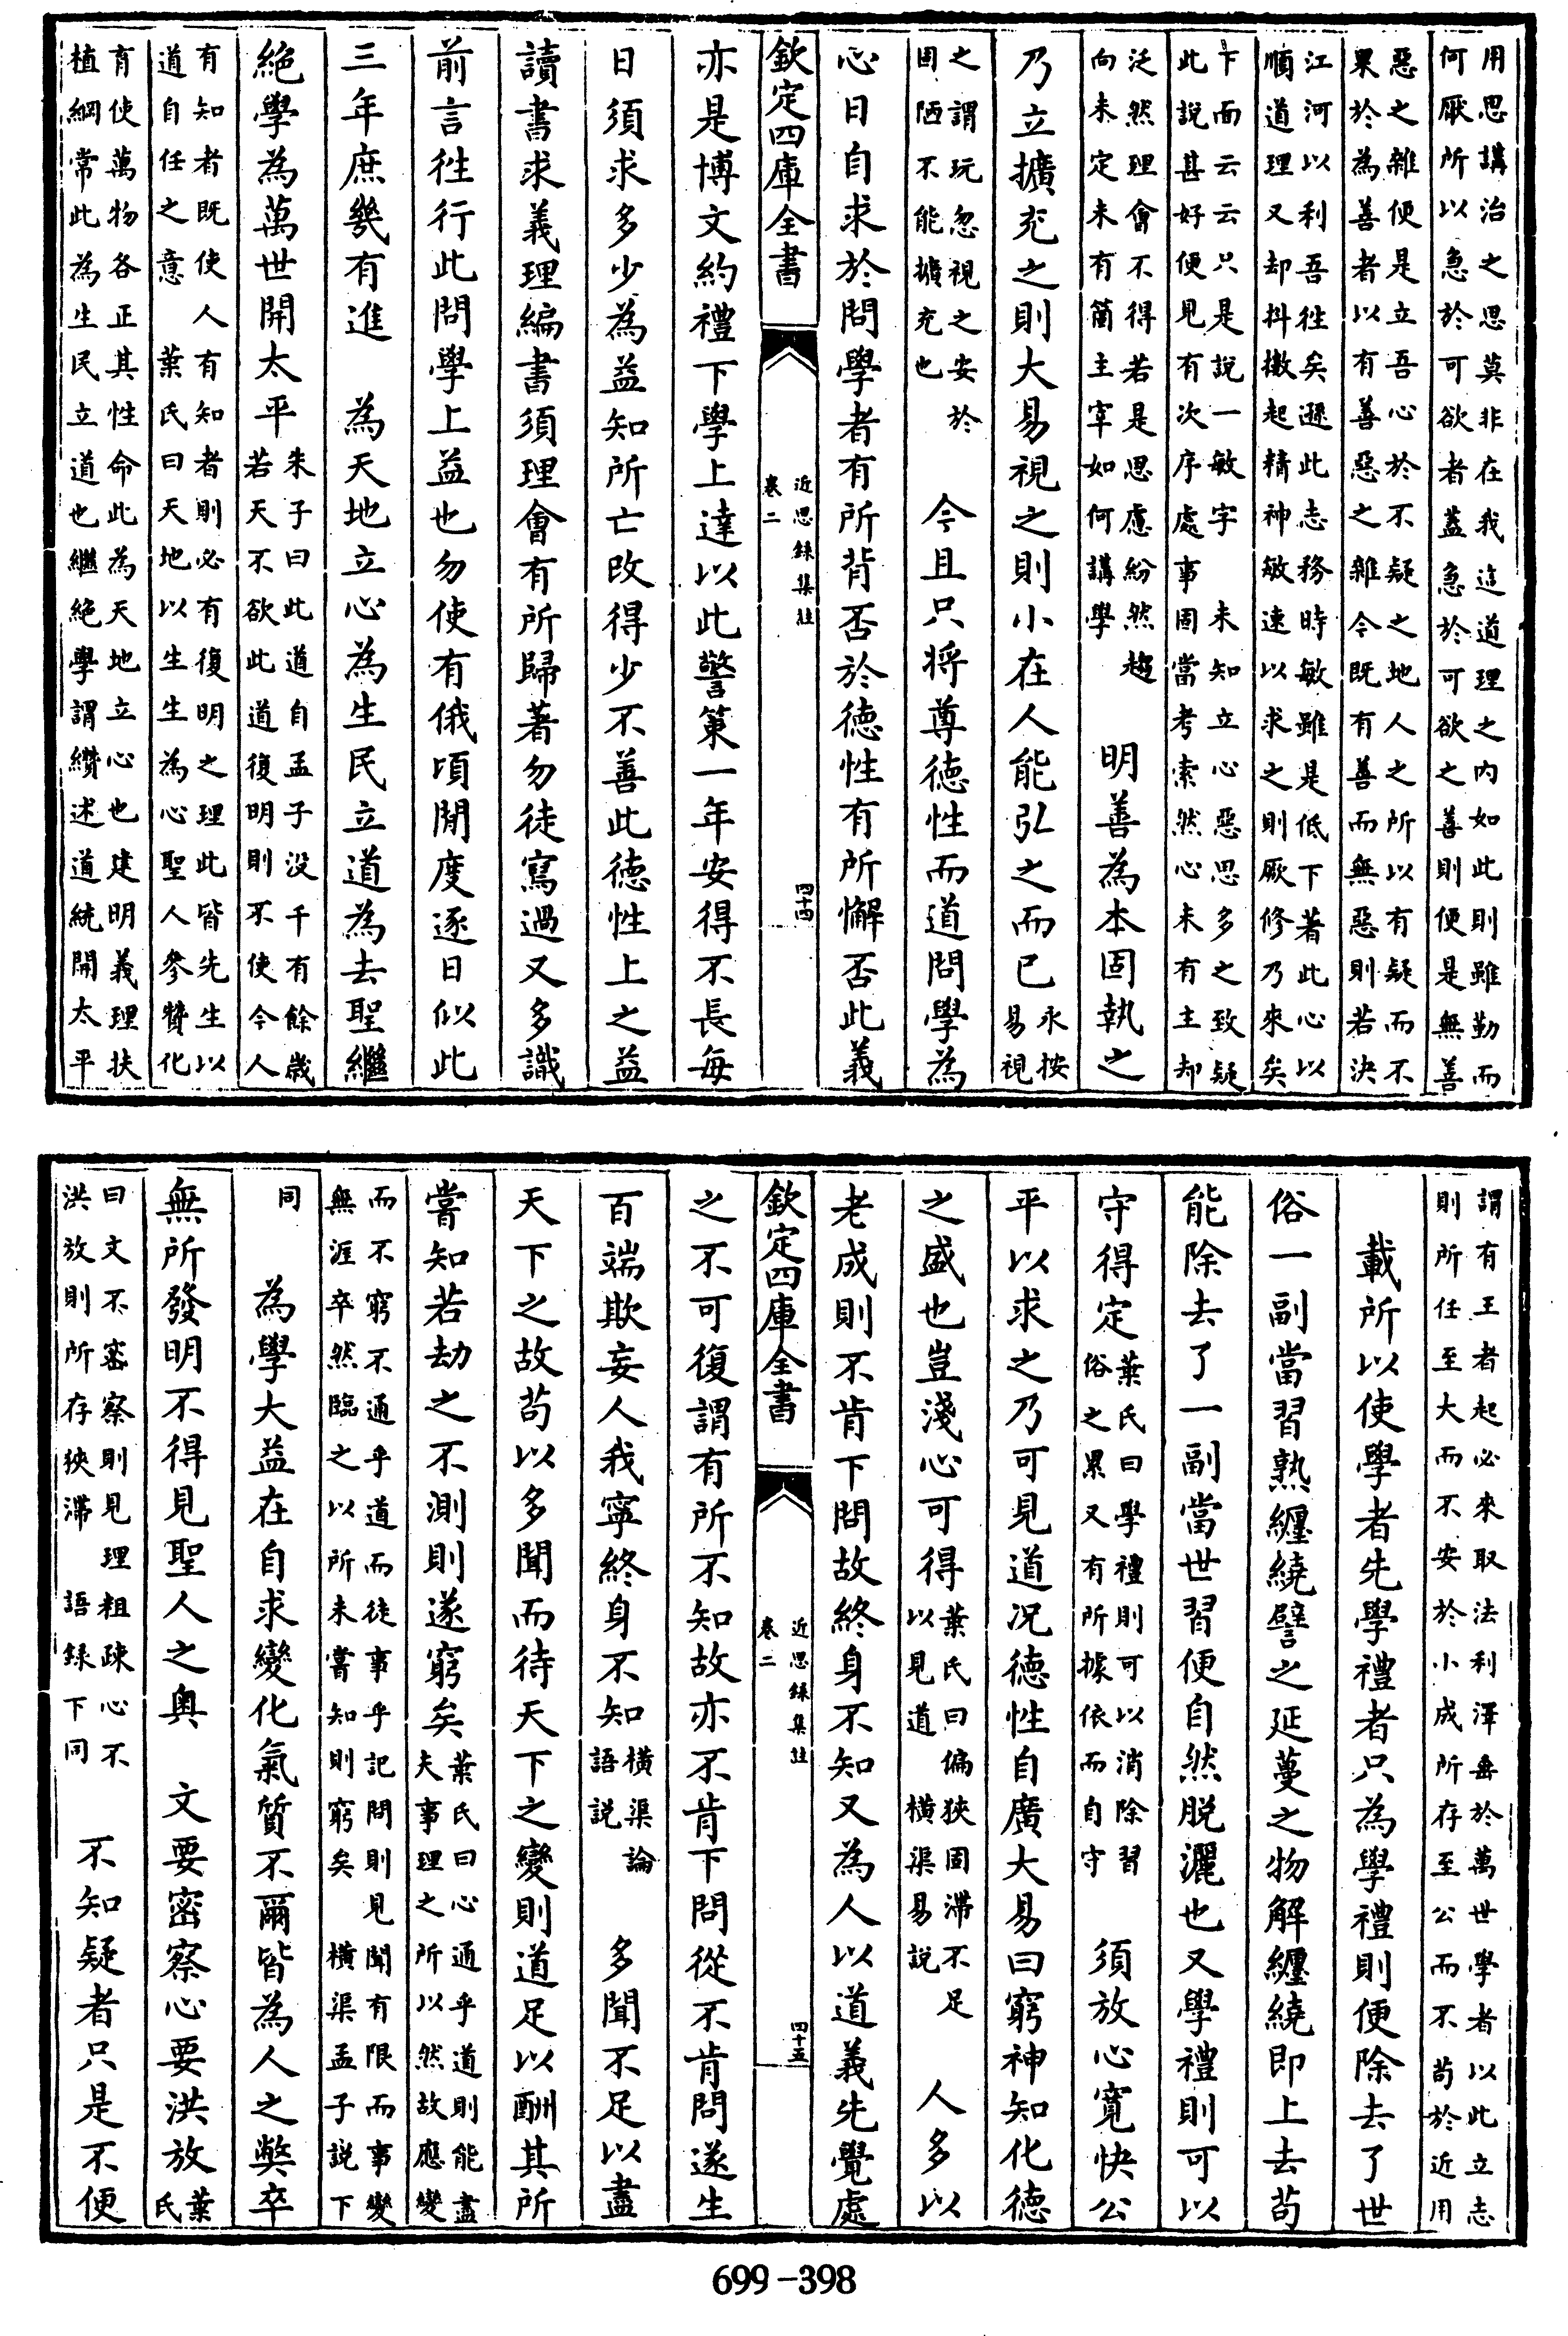 用思講治之思莫非在我這道理之內如此則雖勤而
何厭所以急於可欲者蓋急於可欲之善則便是無善
惡之雜便是立吾心於不疑之地人之所以有疑而不
果於為善者以有善惡之雜今既有善而無惡則若決
江河以利吾徃矣遜此志務時敏雖是低下著此心以
順道理又却抖擻起精神敏速以求之則厥修乃來矣
卞面云云只是說一敏字　未知立心惡思多之致疑
此說甚好便見有次序處事固當考索然心未有主却
泛然理會不得若是思慮紛然趨
向未定未有箇主宰如何講學
明善為本固執之
乃立擴充之則大易視之則小在人能弘之而已
永按
易視
之謂玩忽視之安於
固陋不能擴充也
今且只將尊徳性而道問學為
心日自求於問學者有所背否於徳性有所懈否此義
欽定四庫全書
近思録集註
卷二
四十四
亦是博文約禮下學上達以此警䇿一年安得不長每
日須求多少為益知所亡改得少不善此徳性上之益
讀書求義理編書須理會有所歸著勿徒寫過又多識
前言徃行此問學上益也勿使有俄頃閒度逐日似此
三年庶幾有進　為天地立心為生民立道為去聖繼
絶學為萬世開太平
朱子曰此道自孟子没千有餘歳
若天不欲此道復明則不使今人
有知者既使人有知者則必有復明之理此皆先生以
道自任之意　葉氏曰天地以生生為心聖人參贊化
育使萬物各正其性命此為天地立心也建明義理扶
植綱常此為生民立道也繼絶學謂纘述道統開太平
謂有王者起必來取法利澤垂於萬世學者以此立志
則所任至大而不安於小成所存至公而不苟於近用
載所以使學者先學禮者只為學禮則便除去了世
俗一副當習熟纒繞譬之延蔓之物解纒繞即上去苟
能除去了一副當世習便自然脱灑也又學禮則可以
守得定
葉氏曰學禮則可以消除習
俗之累又有所據依而自守
須放心寛快公
平以求之乃可見道况徳性自廣大易曰窮神知化徳
之盛也豈淺心可得
葉氏曰偏狹固滯不足
以見道　横渠易說
人多以
老成則不肯下問故終身不知又為人以道義先覺處
欽定四庫全書
近思録集註
卷二
四十五
之不可復謂有所不知故亦不肯下問從不肯問遂生
百端欺妄人我寧終身不知
横渠論
語說
多聞不足以盡
天下之故苟以多聞而待天下之變則道足以酬其所
嘗知若劫之不測則遂窮矣
葉氏曰心通乎道則能盡
夫事理之所以然故應變
而不窮不通乎道而徒事乎記問則見聞有限而事變
無涯卒然臨之以所未嘗知則窮矣　横渠孟子說下
同
為學大益在自求變化氣質不爾皆為人之弊卒
無所發明不得見聖人之奥　文要密察心要洪放
葉
氏
曰文不宻察則見理粗疎心不
洪放則所存狹滯　語録下同
不知疑者只是不便
699-398